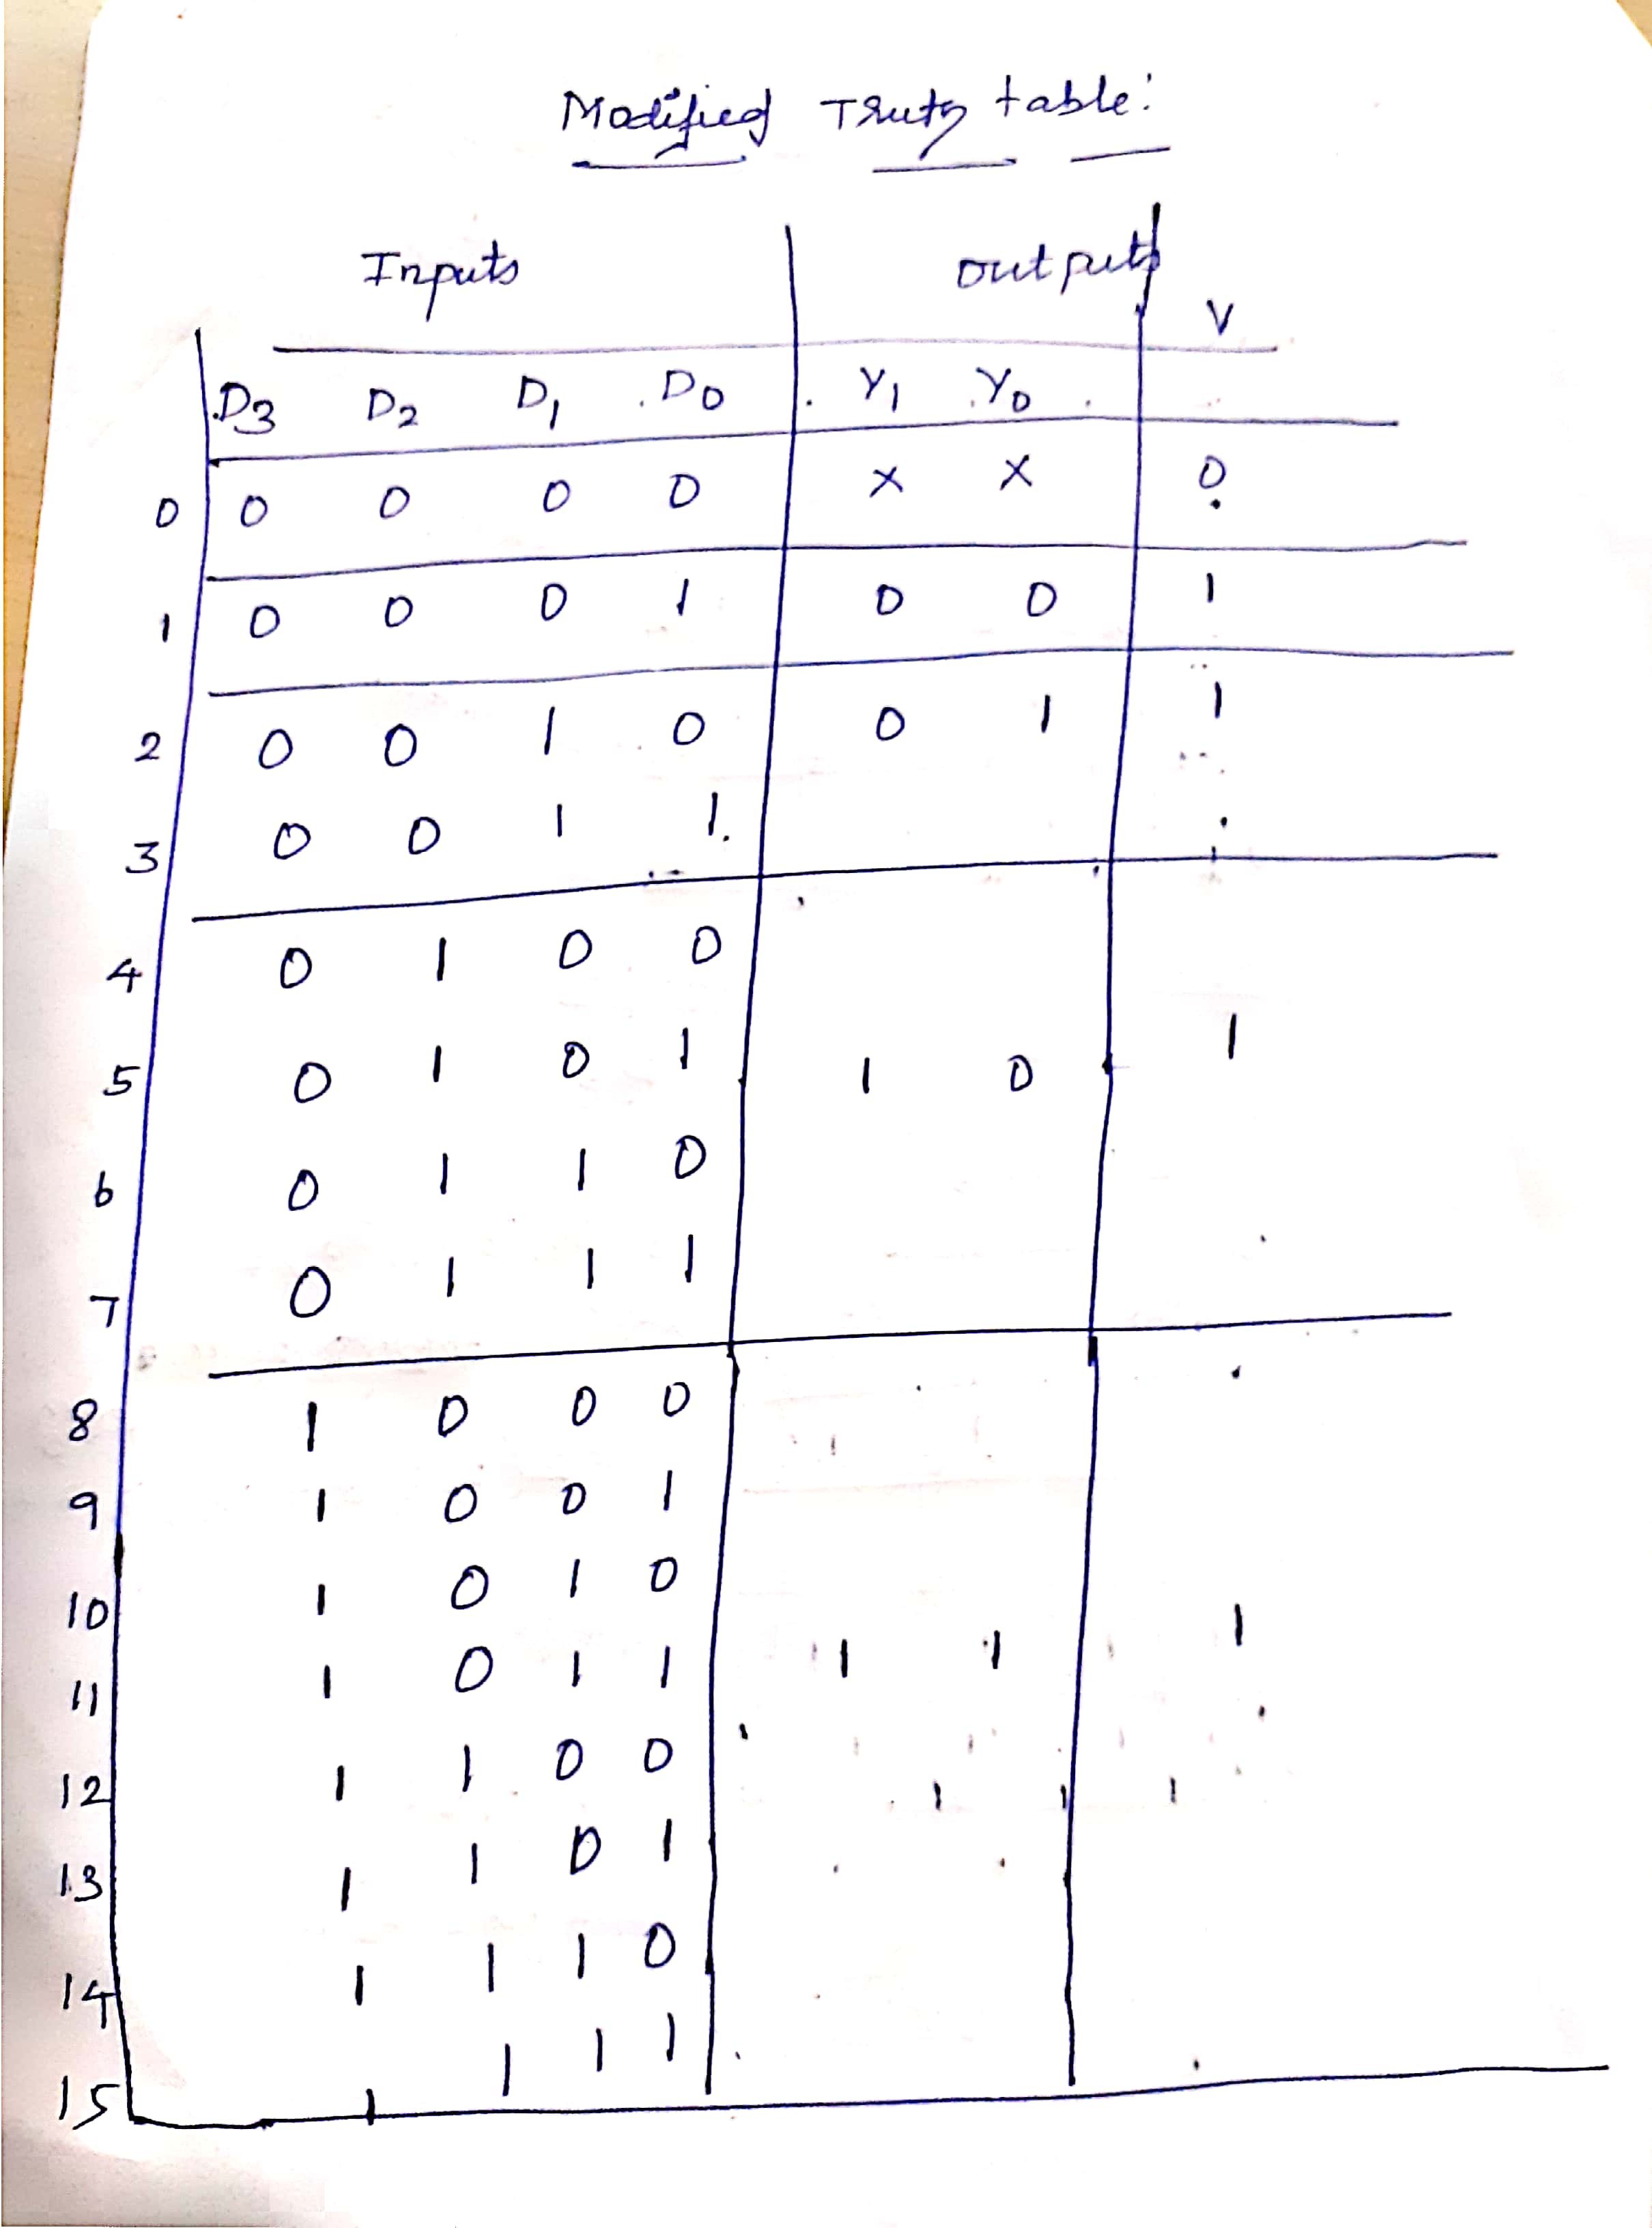 Modified Truth table:
Inputs outputs
V
D3 D2 D1 D0 Y1 Y0
0 0 0 0 0 X X 0
1 0 0 0 1 0 0 1
2 0 0 1 0 0 1 1
3 0 0 1 1
4 0 1 0 0
5 0 1 0 1 1 0 1
6 0 1 1 0
7 0 1 1 1
8 1 0 0 0
9 1 0 0 1
10 1 0 1 0 1
11 1 0 1 1 1 1
12 1 1 0 0
13 1 1 0 1
14 1 1 1 0
15 1 1 1 1